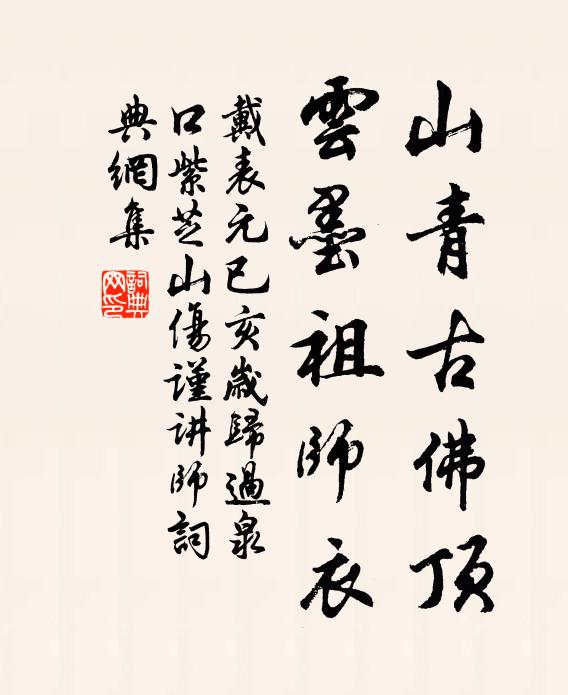 山青古佛頂
雲墨祖師衣
戴表元已亥歲歸過泉
口紫芝山傷謹讲師詞
典網集
詞典
网印